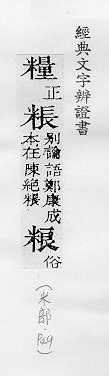 經典文字辨證書
糧正粻別論語鄭康成本在陳絕粻粮俗
(米部.P49)